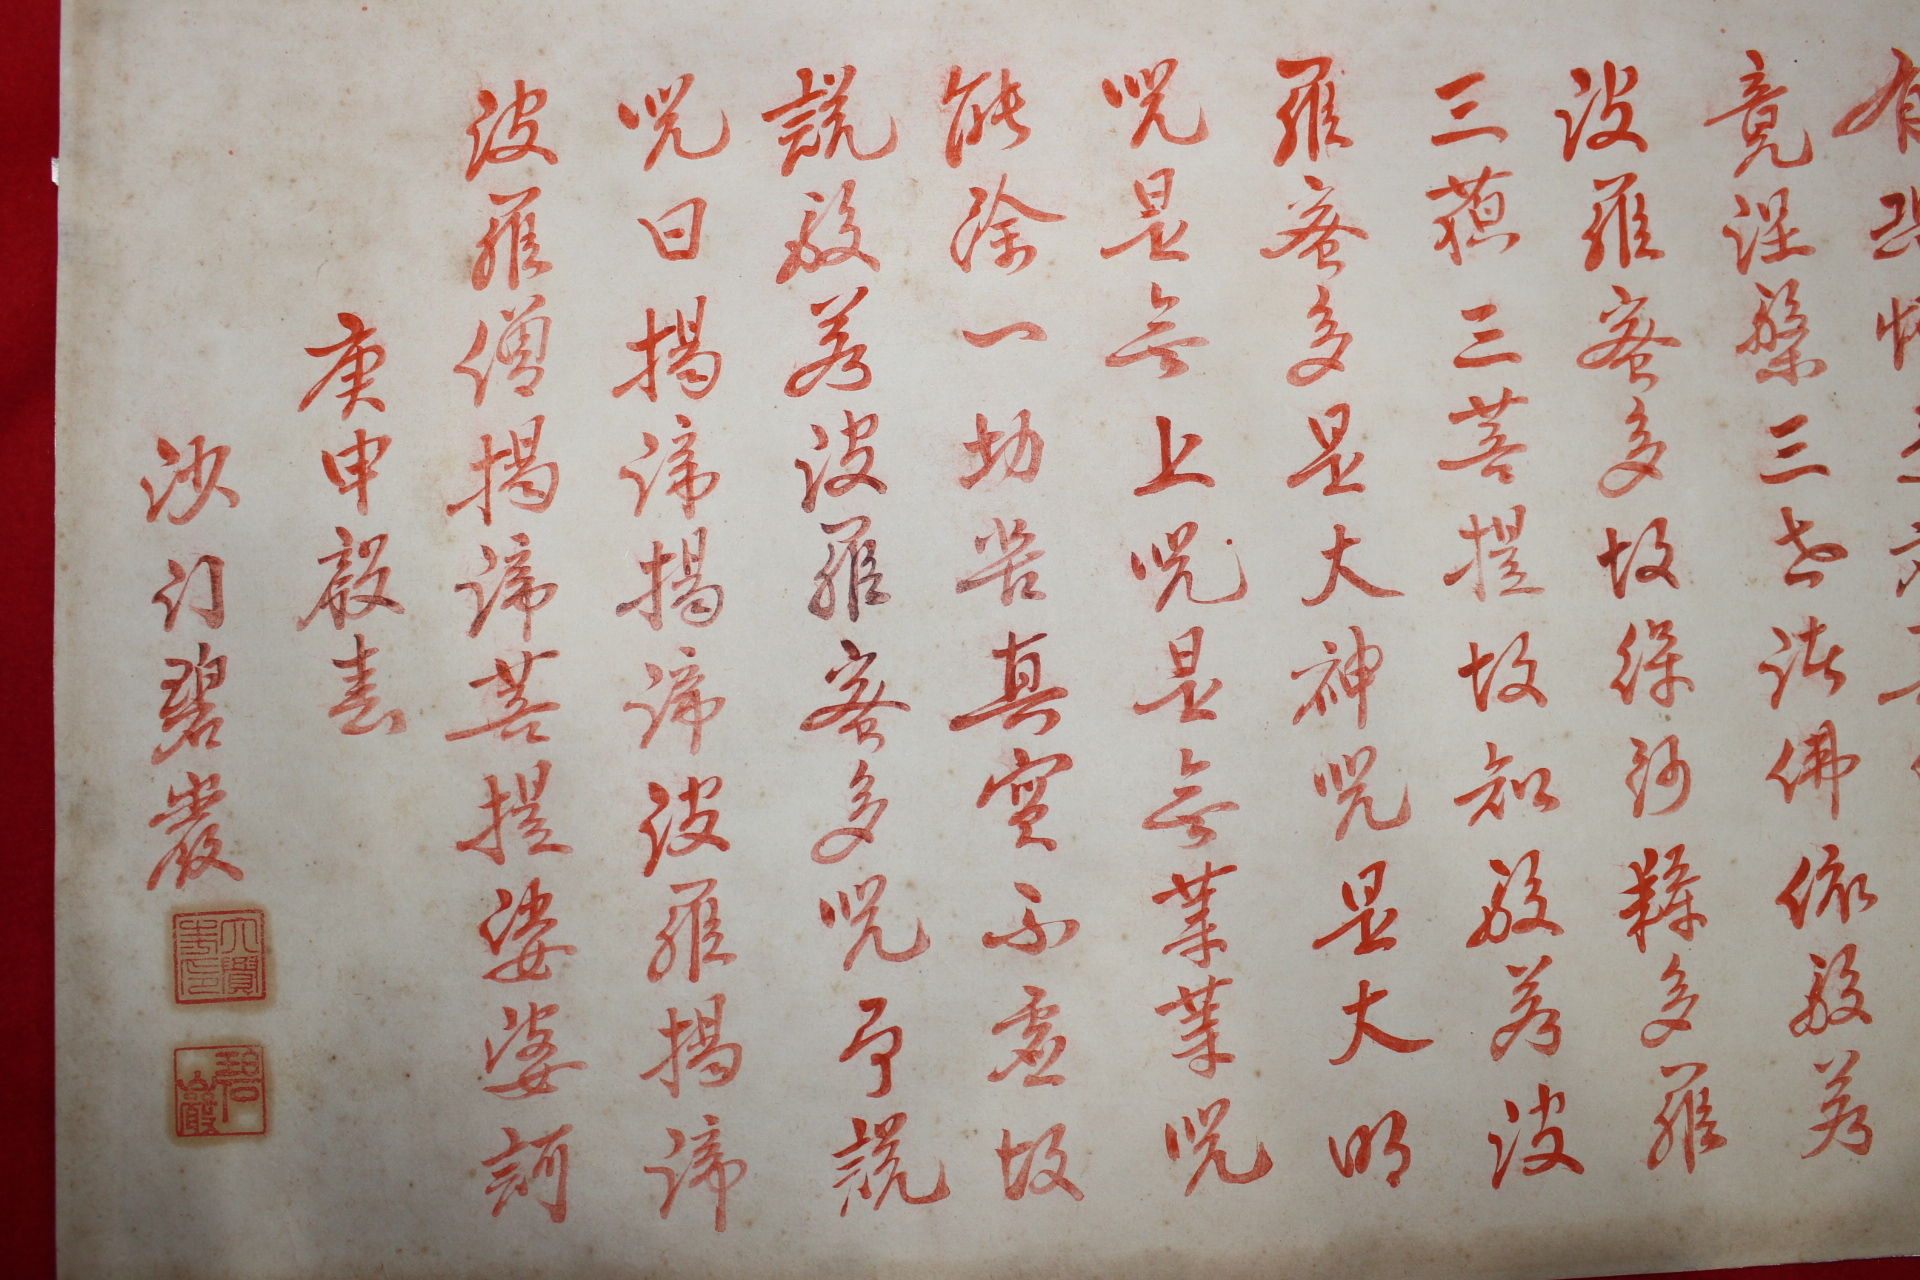 有恐怖
竟涅槃三世諸佛依般若
波羅蜜多故得阿耨多羅
三藐三菩提故知般若波
羅蜜多是大神呪是大明
呪是無上呪是無等等呪
能除一切苦真實不虛故
說般若波羅蜜多呪即說
呪曰揭諦揭諦波羅揭諦
波羅僧揭諦菩提娑婆訶
庚申殿春
沙門碧巖
碧巖